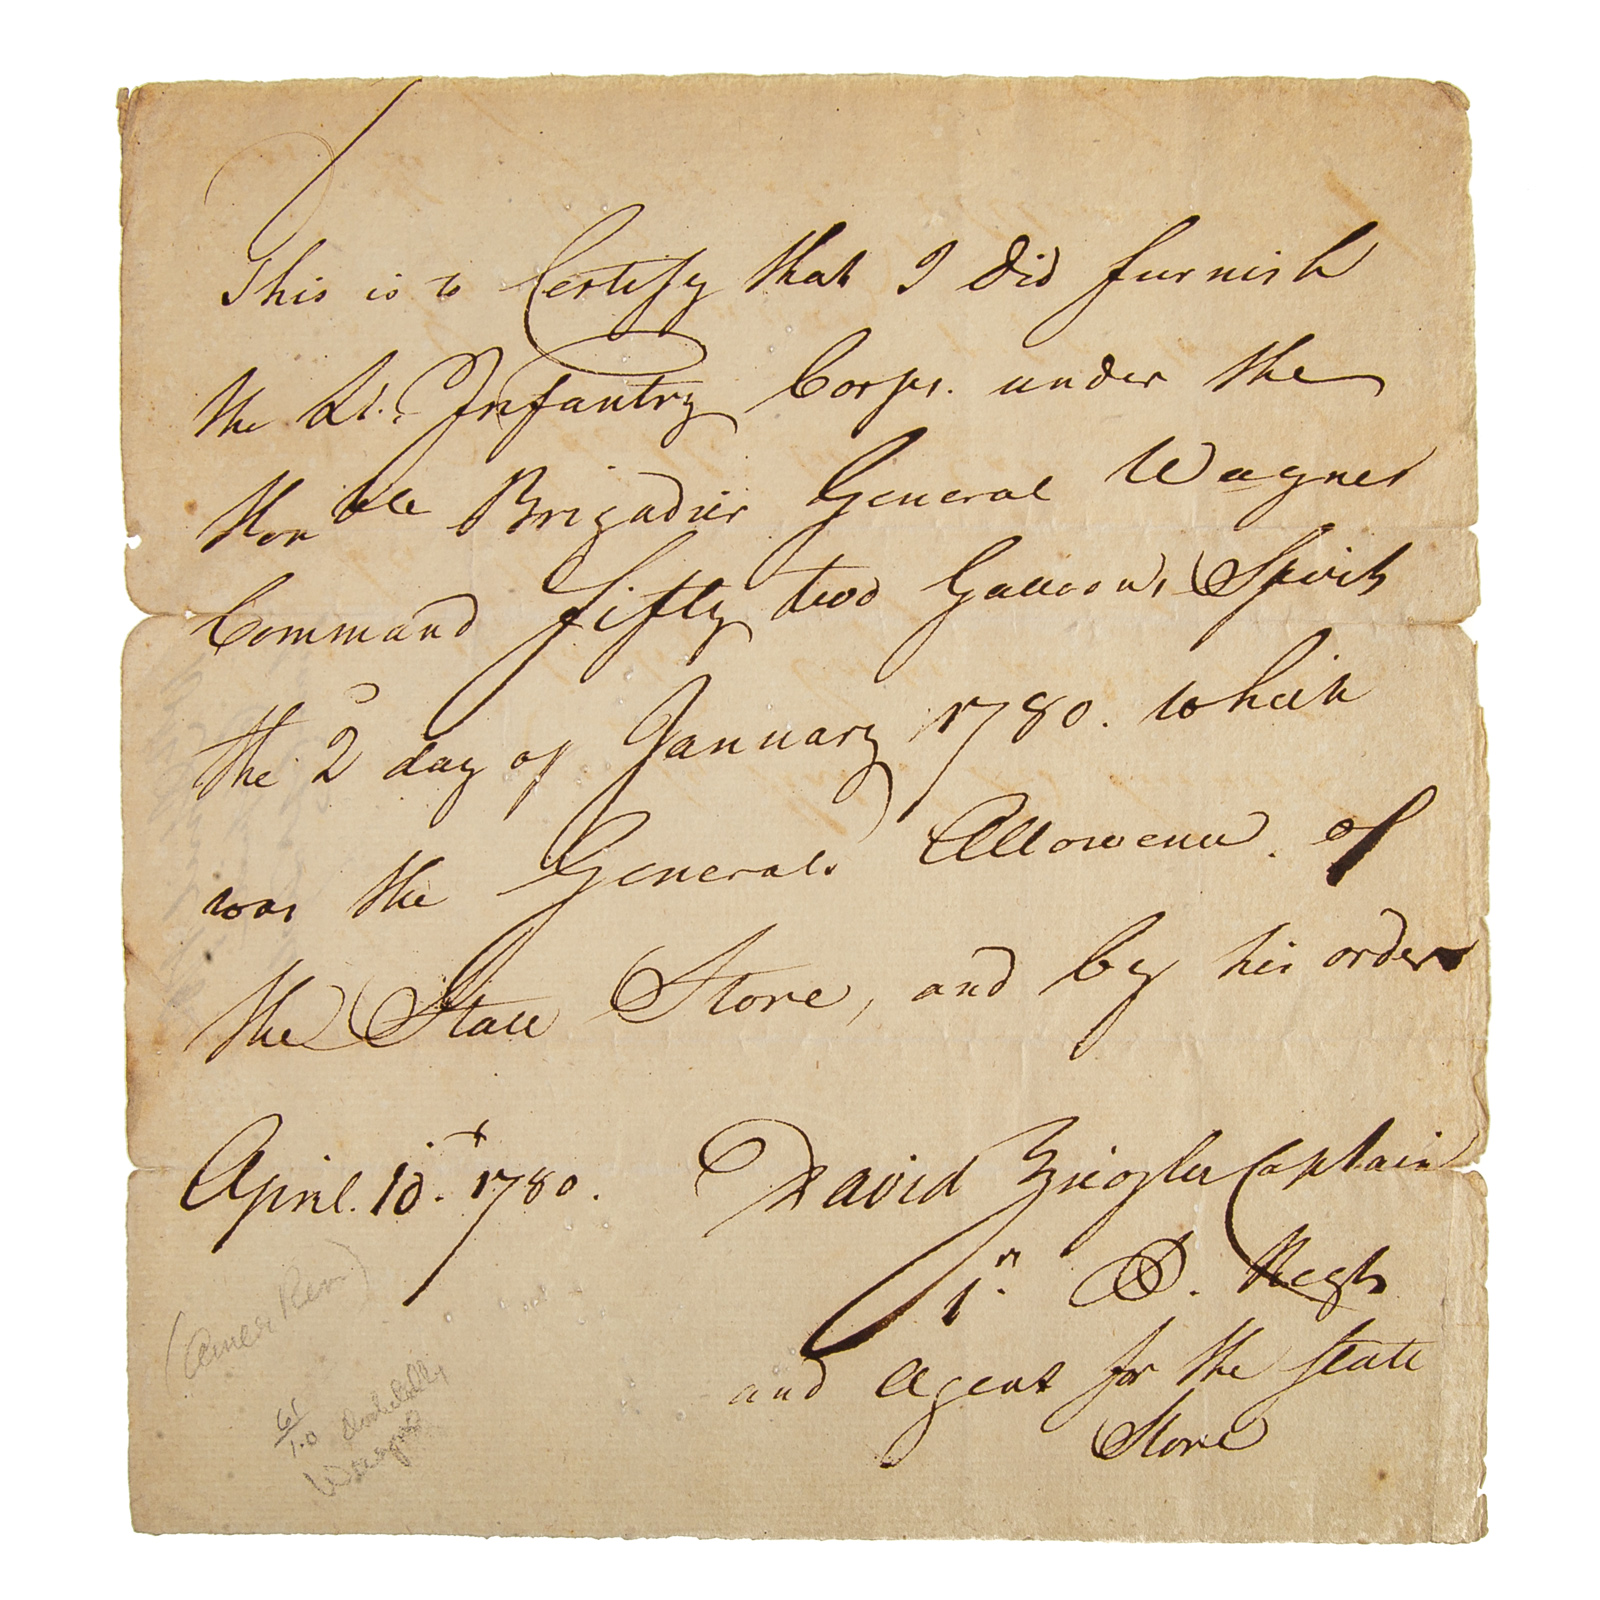 This is to Certify that I did furnish
the Lt. Infantry Corps. under the
Honble Brigadier General Wagnes
Command fifty two Galloons Spirits
the 2d day of January 1780. which
was the Generals Allowence. of
the State Store, and by his orders
April. 10.t 1780. David Ziegler Captain
1.n P. Regt
and Agent for the State
Store
(Amer Rev)